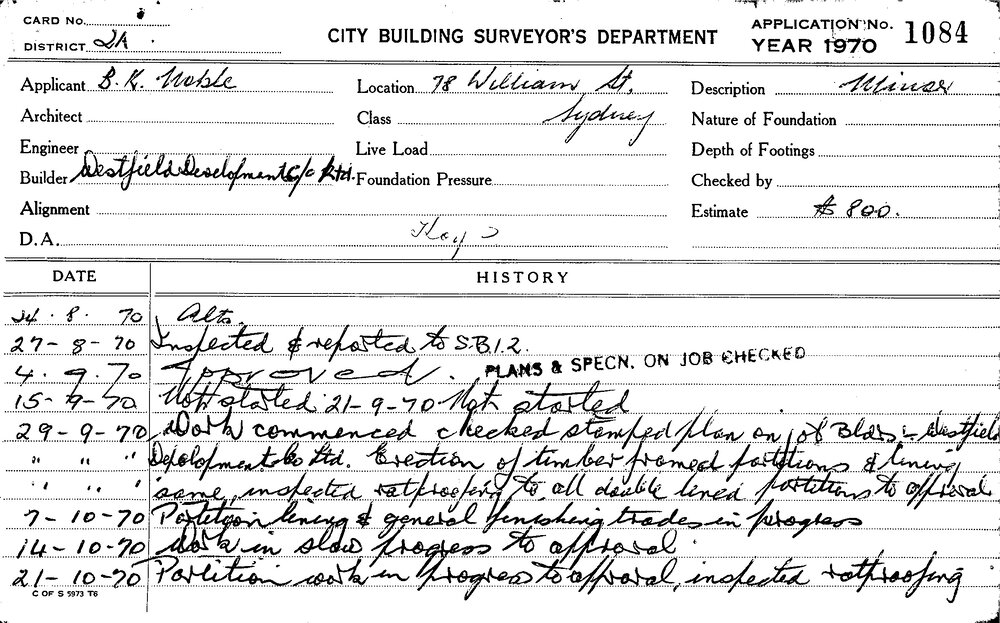 CARD No.
DISTRICT 2A
CITY BUILDING SURVEYOR'S DEPARTMENT
APPLICATION No. 1084
YEAR 1970
Applicant B. K. Noble
Location 78 William St.
Description Minor
Architect
Class Sydney
Nature of Foundation
Engineer
Live Load
Depth of Footings
Builder Westfield Development C/o Ltd.
Foundation Pressure
Checked by
Alignment
Estimate $ 800.
D.A.
DATE HISTORY
24.8.70 Alts.
27-8-70 Inspected & reported to S.B.I.2.
4.9.70 Approved. PLANS & SPECN. ON JOB CHECKED
15-9-70 Not started 21-9-70 Not started
29-9-70 Work commenced checked stamped plan on job Bldrs :- Westfield
" " " Depolopment Co Ltd. Erection of timber framed partitions & lining
" " " same, inspected ratproofing to all double lined partitions to approval
7-10-70 Partition lining & general finishing trades in progress
14-10-70 Work in slow progress to approval
21-10-70 Partition work in progress to approval, inspected ratproofing
C OF S 5973 T6